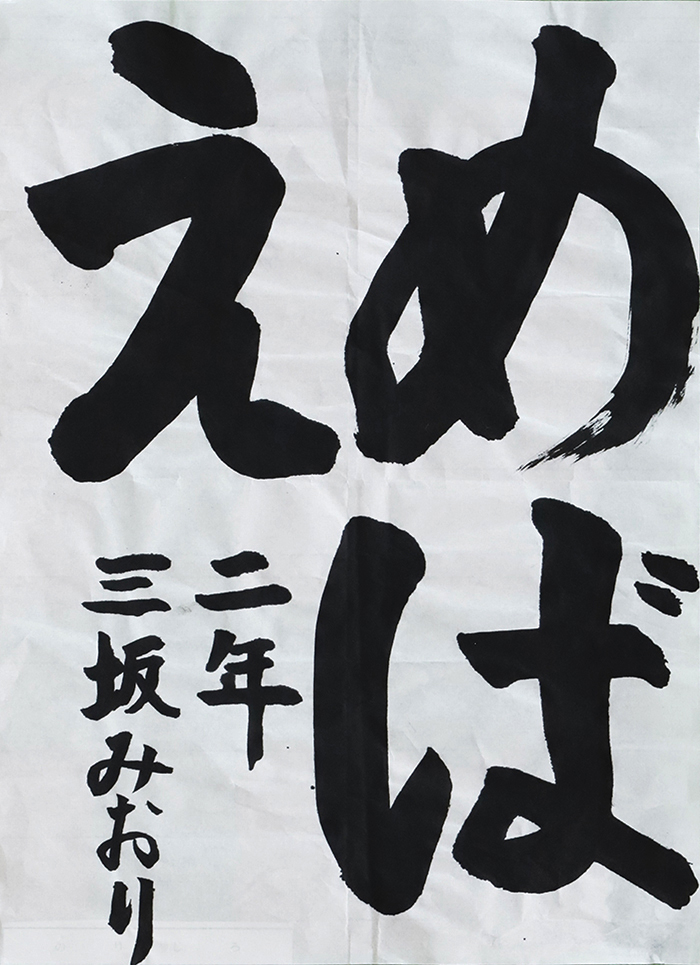 めば
え
二年
三坂みおり